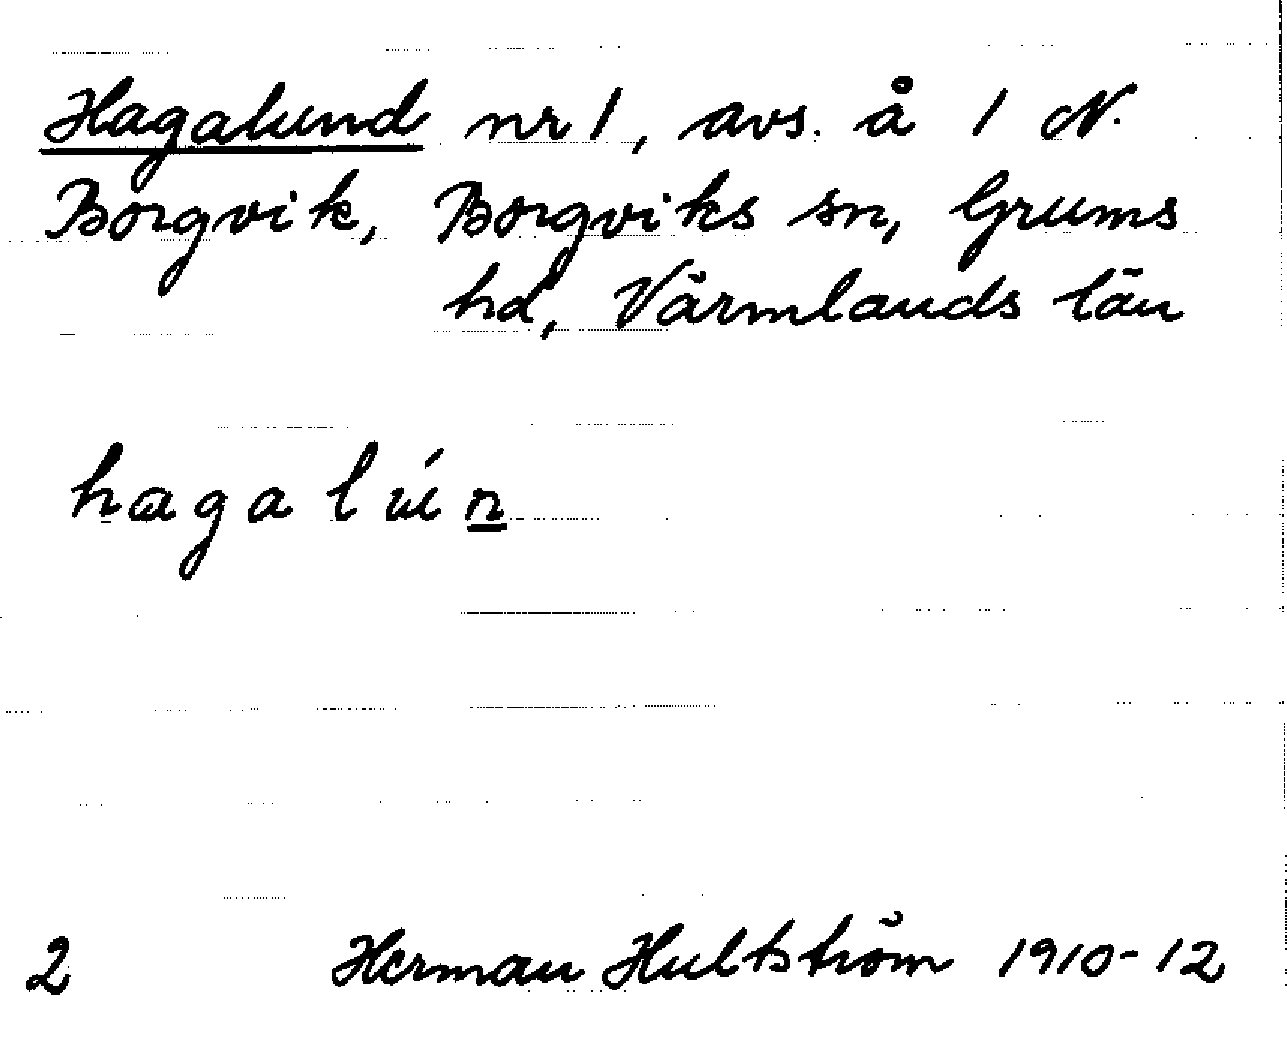 Hagalund nr 1, avs. å 1 N.
Borgvik, Borgviks sn, Grums
hd, Värmlands län
hagalún
2 Herman Hultström 1910-12